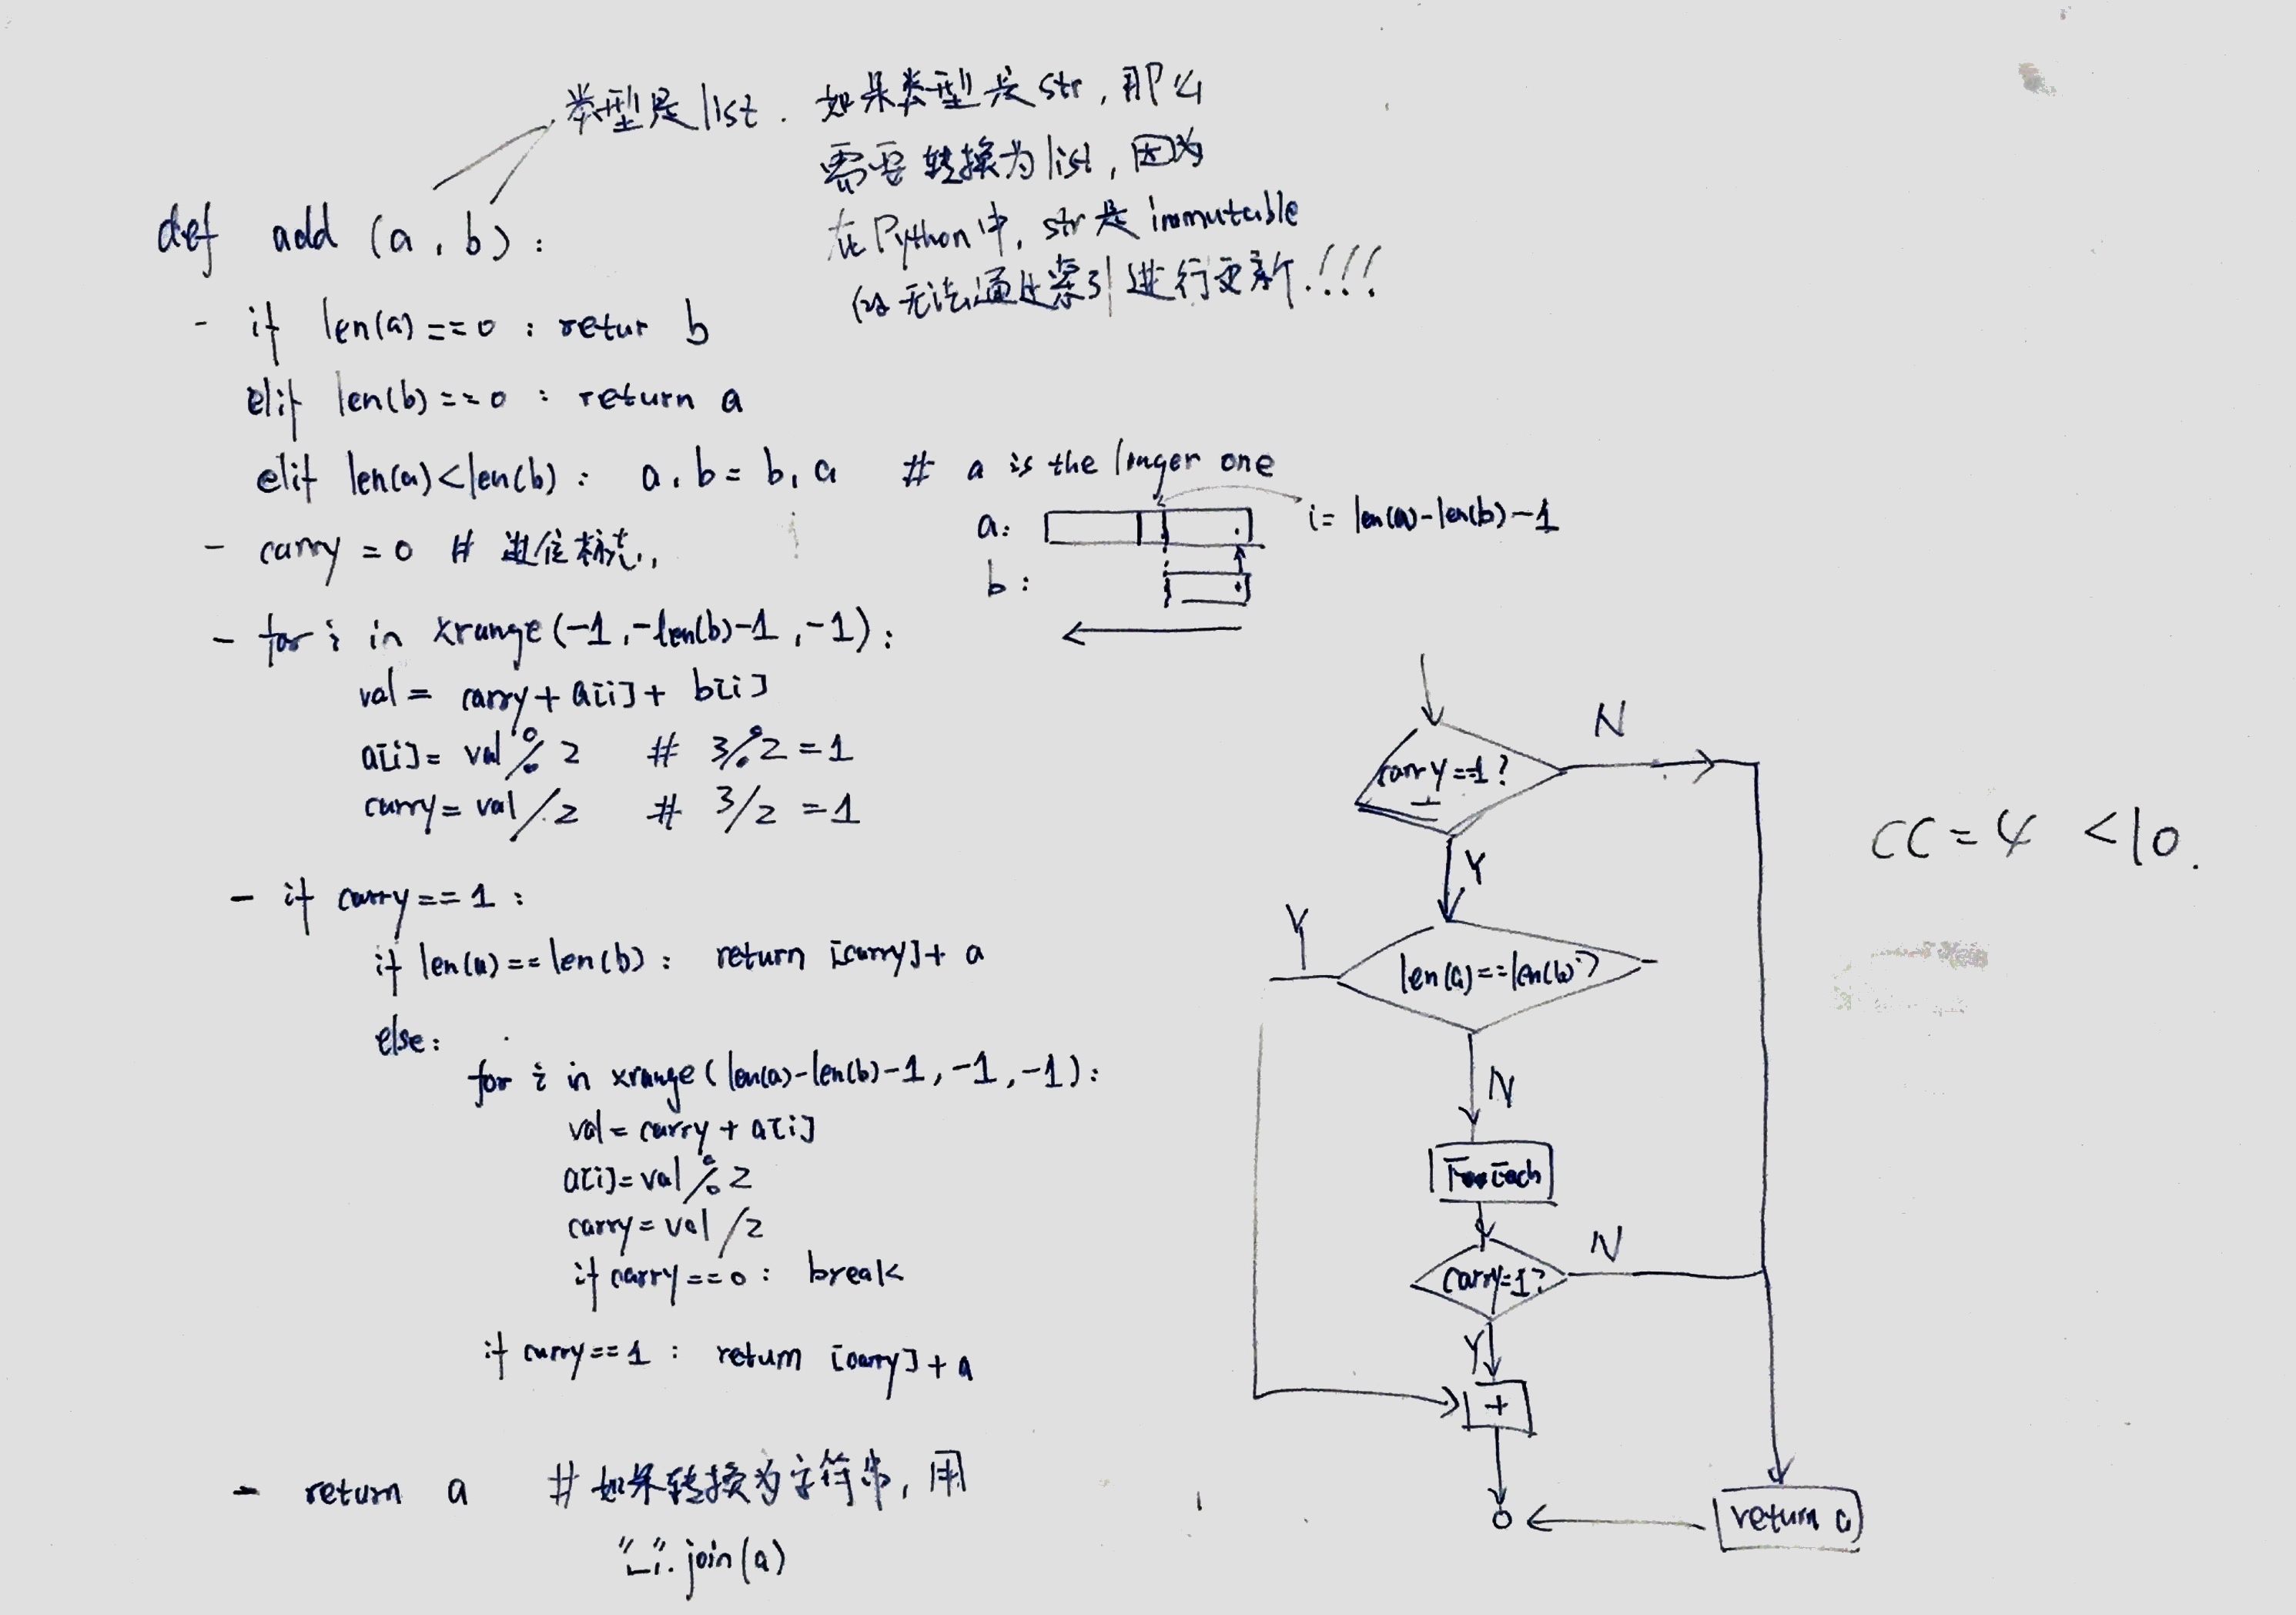 类型是list. 如果类型是str, 那么
需要转换为list, 因为
在Python中, str是immutable
无法通过索引进行更新!!!
def add (a, b):
- if len(a)==0 : retur b
elif len(b)==0 : return a
elif len(a)<len(b): a, b = b, a # a is the longer one
- carry = 0 # 进位标志
a:
i= len(a)-len(b)-1
b:
- for i in xrange(-1,-len(b)-1,-1):
val = carry + a[i] + b[i]
a[i]= val % 2 # 3%2=1
carry= val/2 # 3/2 =1
- if carry==1 :
if len(a)==len(b): return [carry]+ a
else:
for i in xrange(len(a)-len(b)-1, -1, -1):
val = carry + a[i]
a[i]=val % 2
carry=val /2
if carry==0: break
if carry==1 : return [carry]+ a
- return a # 如果转换为字符串, 用
join(a)
carry==1?
N
Y
len(a)==len(b)?
Y
N
ForEach
carry=1?
N
Y
+
return a
CC=4 <10.